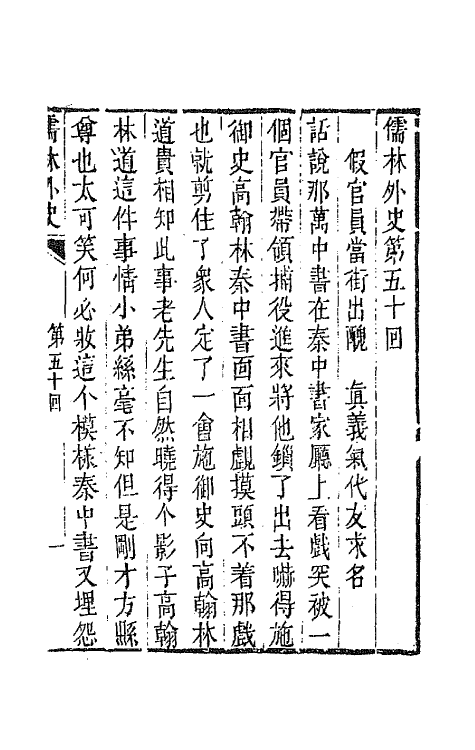 儒林外史第五十回
假官員當街出醜　眞義氣代友求名
話說那萬中書在秦中書家廳上看戲突被一
個官員帶領捕役進來將他鎖了出去嚇得施
御史高翰林秦中書面面相覷摸頭不着那戲
也就剪住了衆人定了一會施御史向高翰林
道貴相知此事老先生自然曉得个影子高翰
林道這件事情小弟絲毫不知但是剛才方縣
尊也太可笑何必妝這个模樣秦中書又埋怨
儒林外史
第五十回
一